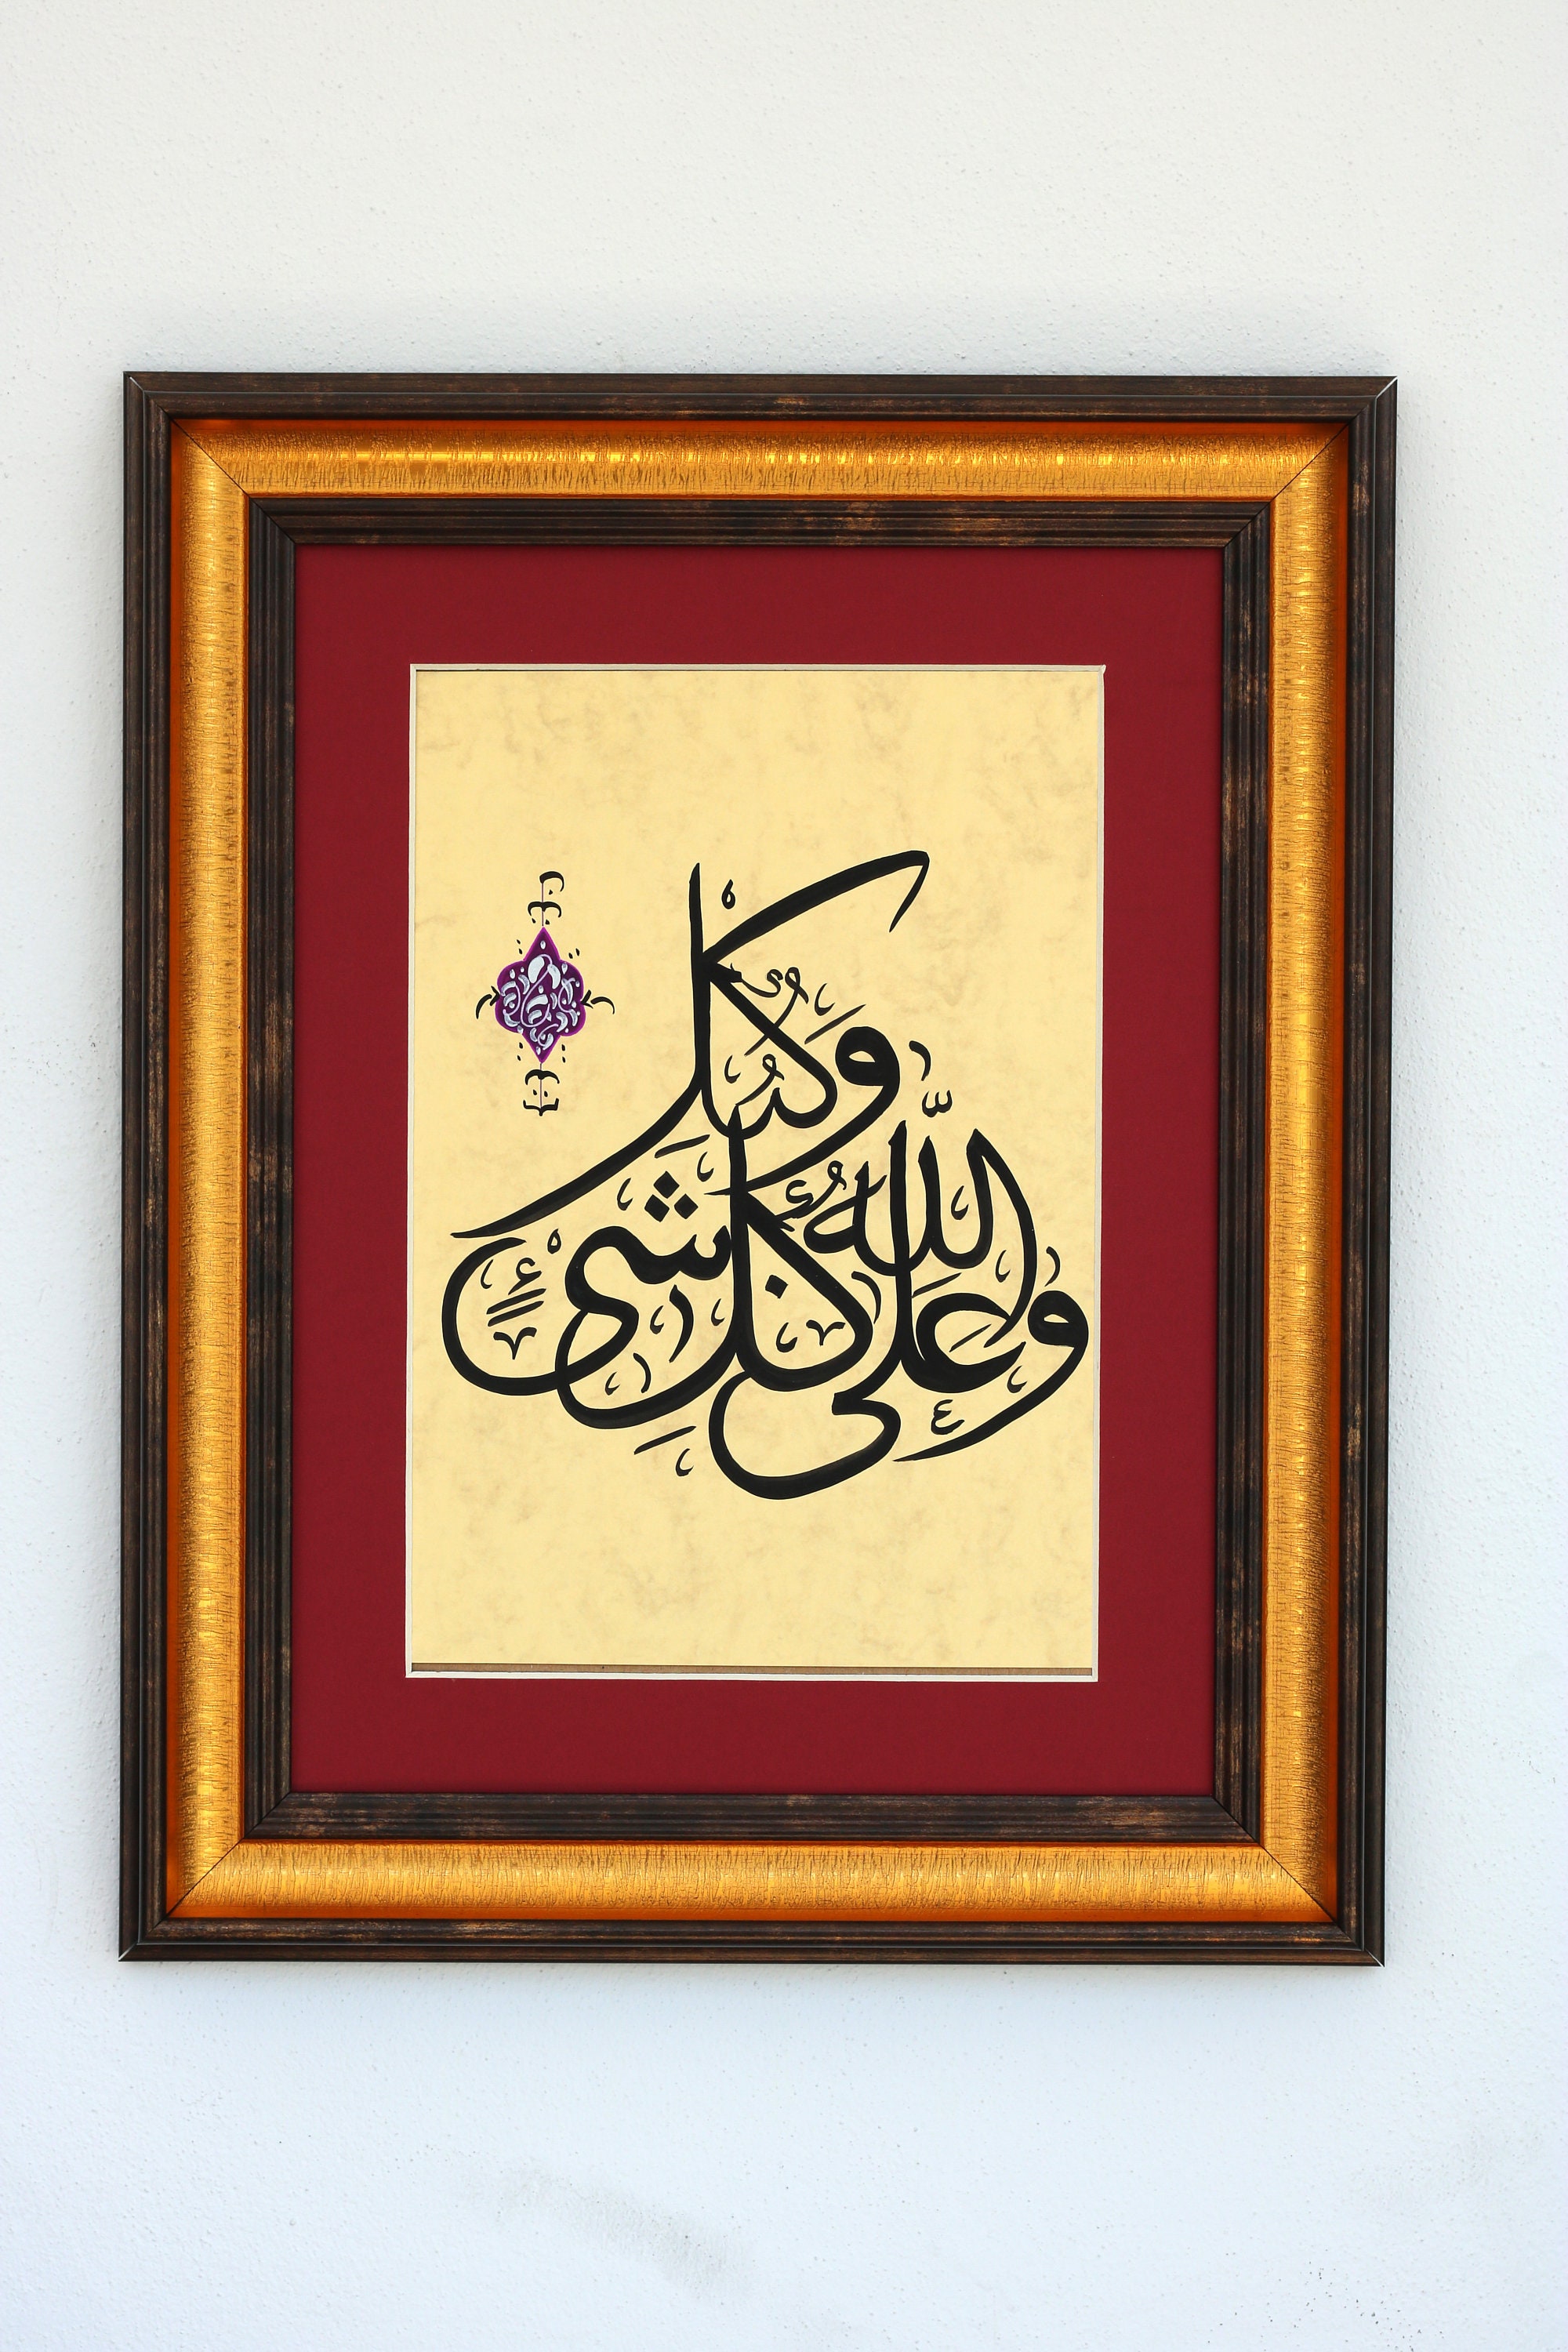 وَاللّٰهُ عَلٰى كُلِّ شَىْءٍ وَكٖيلٌ